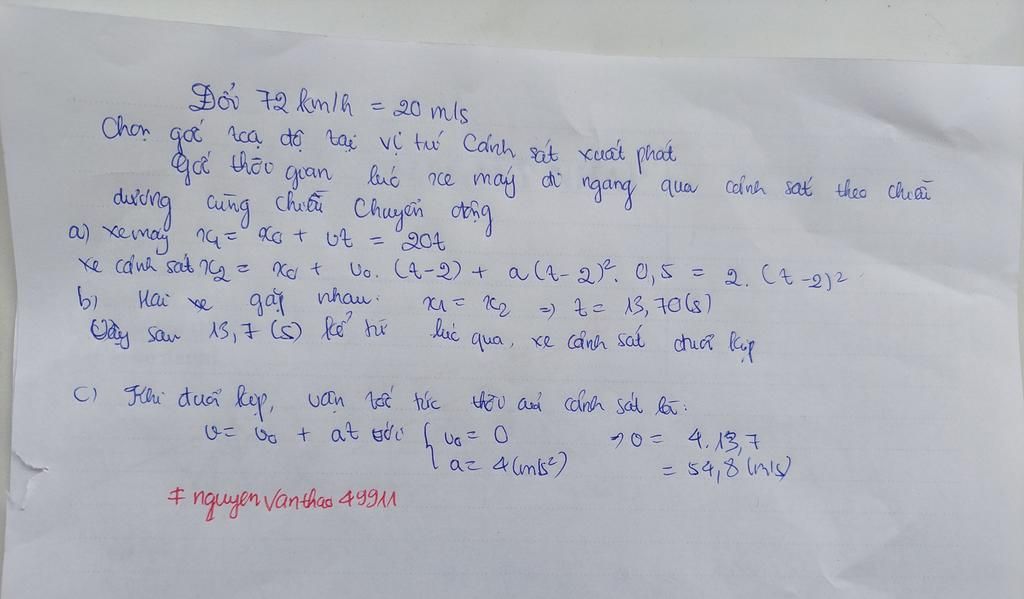 Đổi 72 km/h = 20 m/s
Chọn gốc toạ độ tại vị trí cảnh sát xuất phát
Gốc thời gian lúc xe máy đi ngang qua cảnh sát theo chiều
dương cùng chiều chuyển động
a) xe máy x₁ = x₀ + vt = 20t
xe cảnh sát x₂ = x₀ + v₀. (t-2) + a(t-2)². 0,5 = 2. (t-2)²
b) Hai xe gặp nhau: x₁ = x₂ => t = 13,70(s)
Vậy sau 13,7 (s) kể từ lúc qua, xe cảnh sát đuổi kịp
c) Khi đuổi kịp, vận tốc tức thời của cảnh sát là:
v = v₀ + at với { v₀ = 0 → v = 4.13,7
a = 4(m/s²) = 54,8 (m/s)
# nguyenvanthao49911